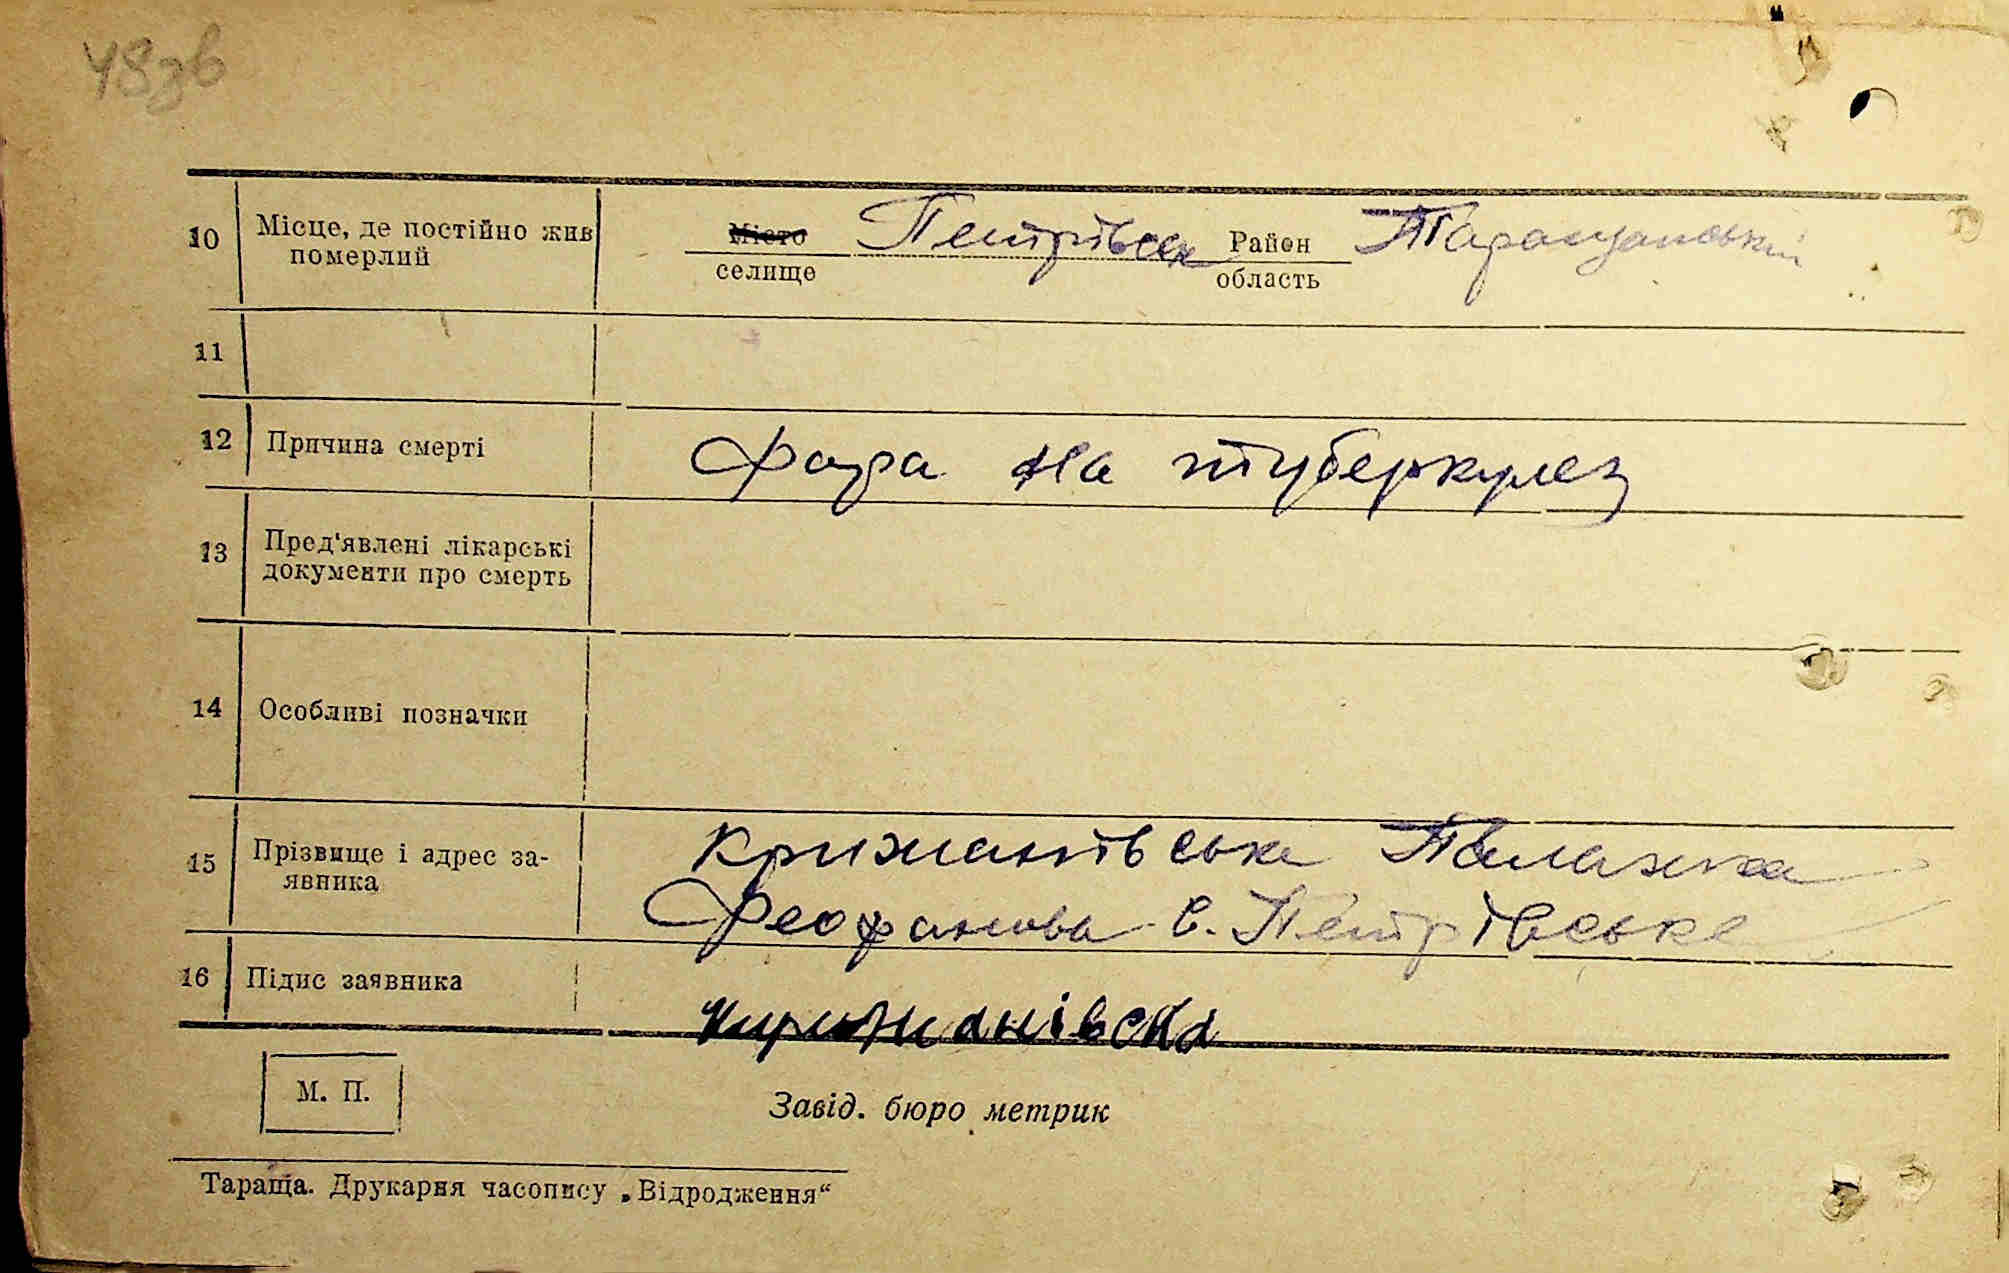 48зв
10 Місце, де постійно жив Місто Петрівськ Район Таращанський
померлий селище область
11
12 Причина смерті на туберкулез
13 Пред'явлені лікарські
документи про смерть
14 Особливі позначки
15 Прізвище і адрес за- Крижанівська Палажка
явника Феофанова с. Петрівське
16 Підис заявника Крижанівска
М. П.
Завід. бюро метрик
Тараща. Друкарня часопису „Відродження“